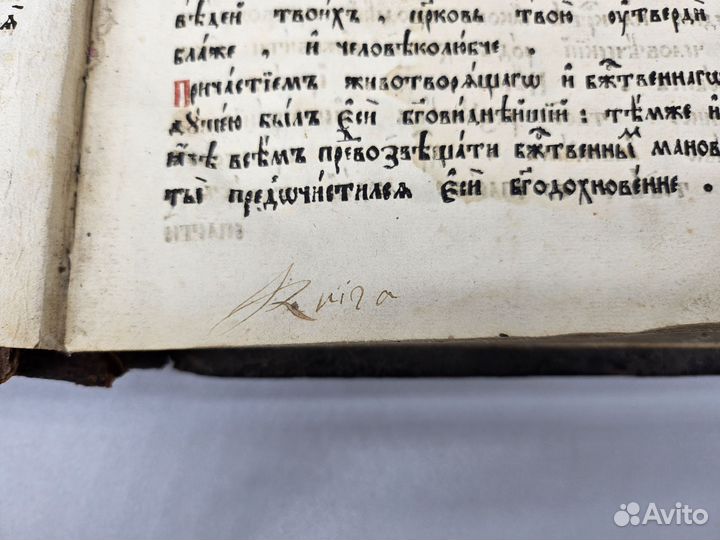 вѣдей твоихъ , црковь твою ᲂутверди
блаже , и человѣколюбче ,
Причастїемъ животворѧщагѡ и бжтвеннагѡ
былъ еси бговиднѣйшїй : тѣмже и
всѣмъ превозвѣщати бжтвенный
предъѡчистилсѧ еси бгодохновенне .
Книга
Avito